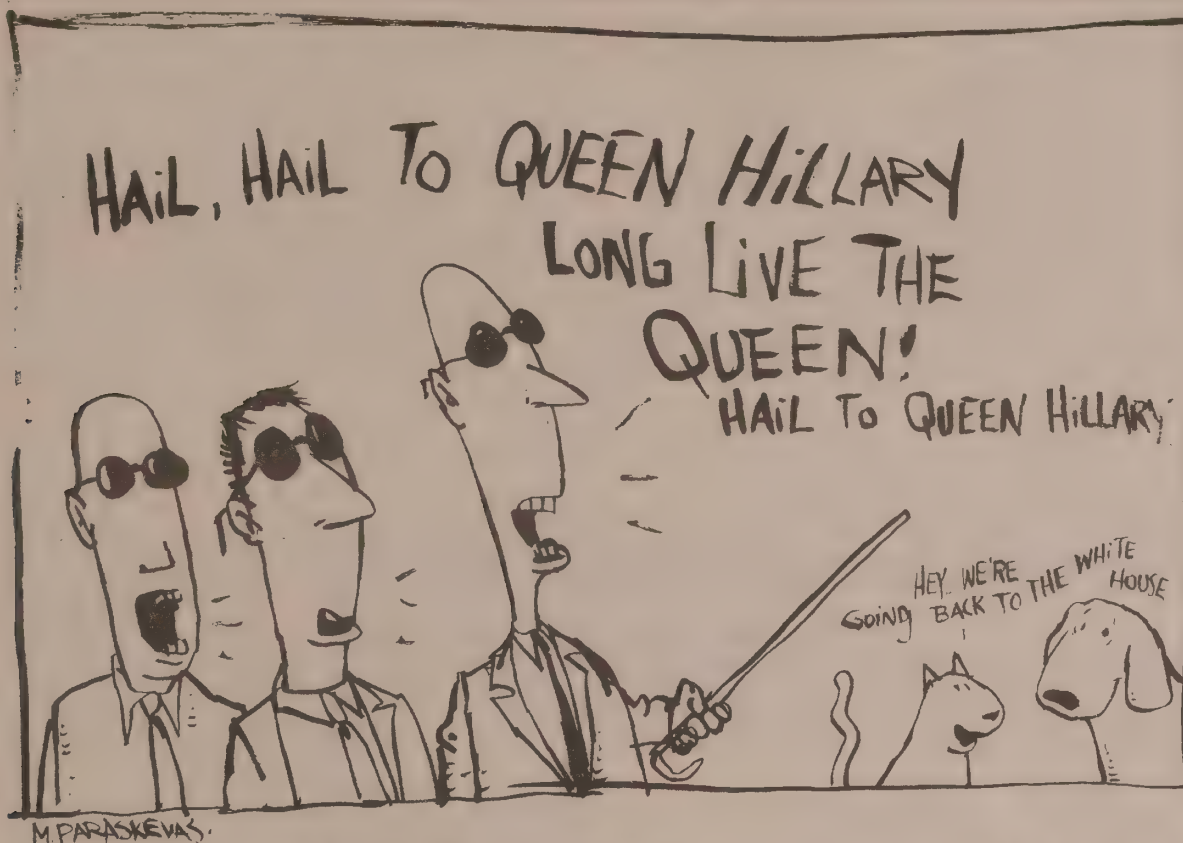 HAiL, HAiL TO QUEEN HiLLARY
LONG LiVE THE
QUEEN!
HAiL TO QUEEN HiLLARY
HEY.. WE'RE
GOiNG BACK TO THE WHiTE
HOUSE
M. PARASKEVAS.